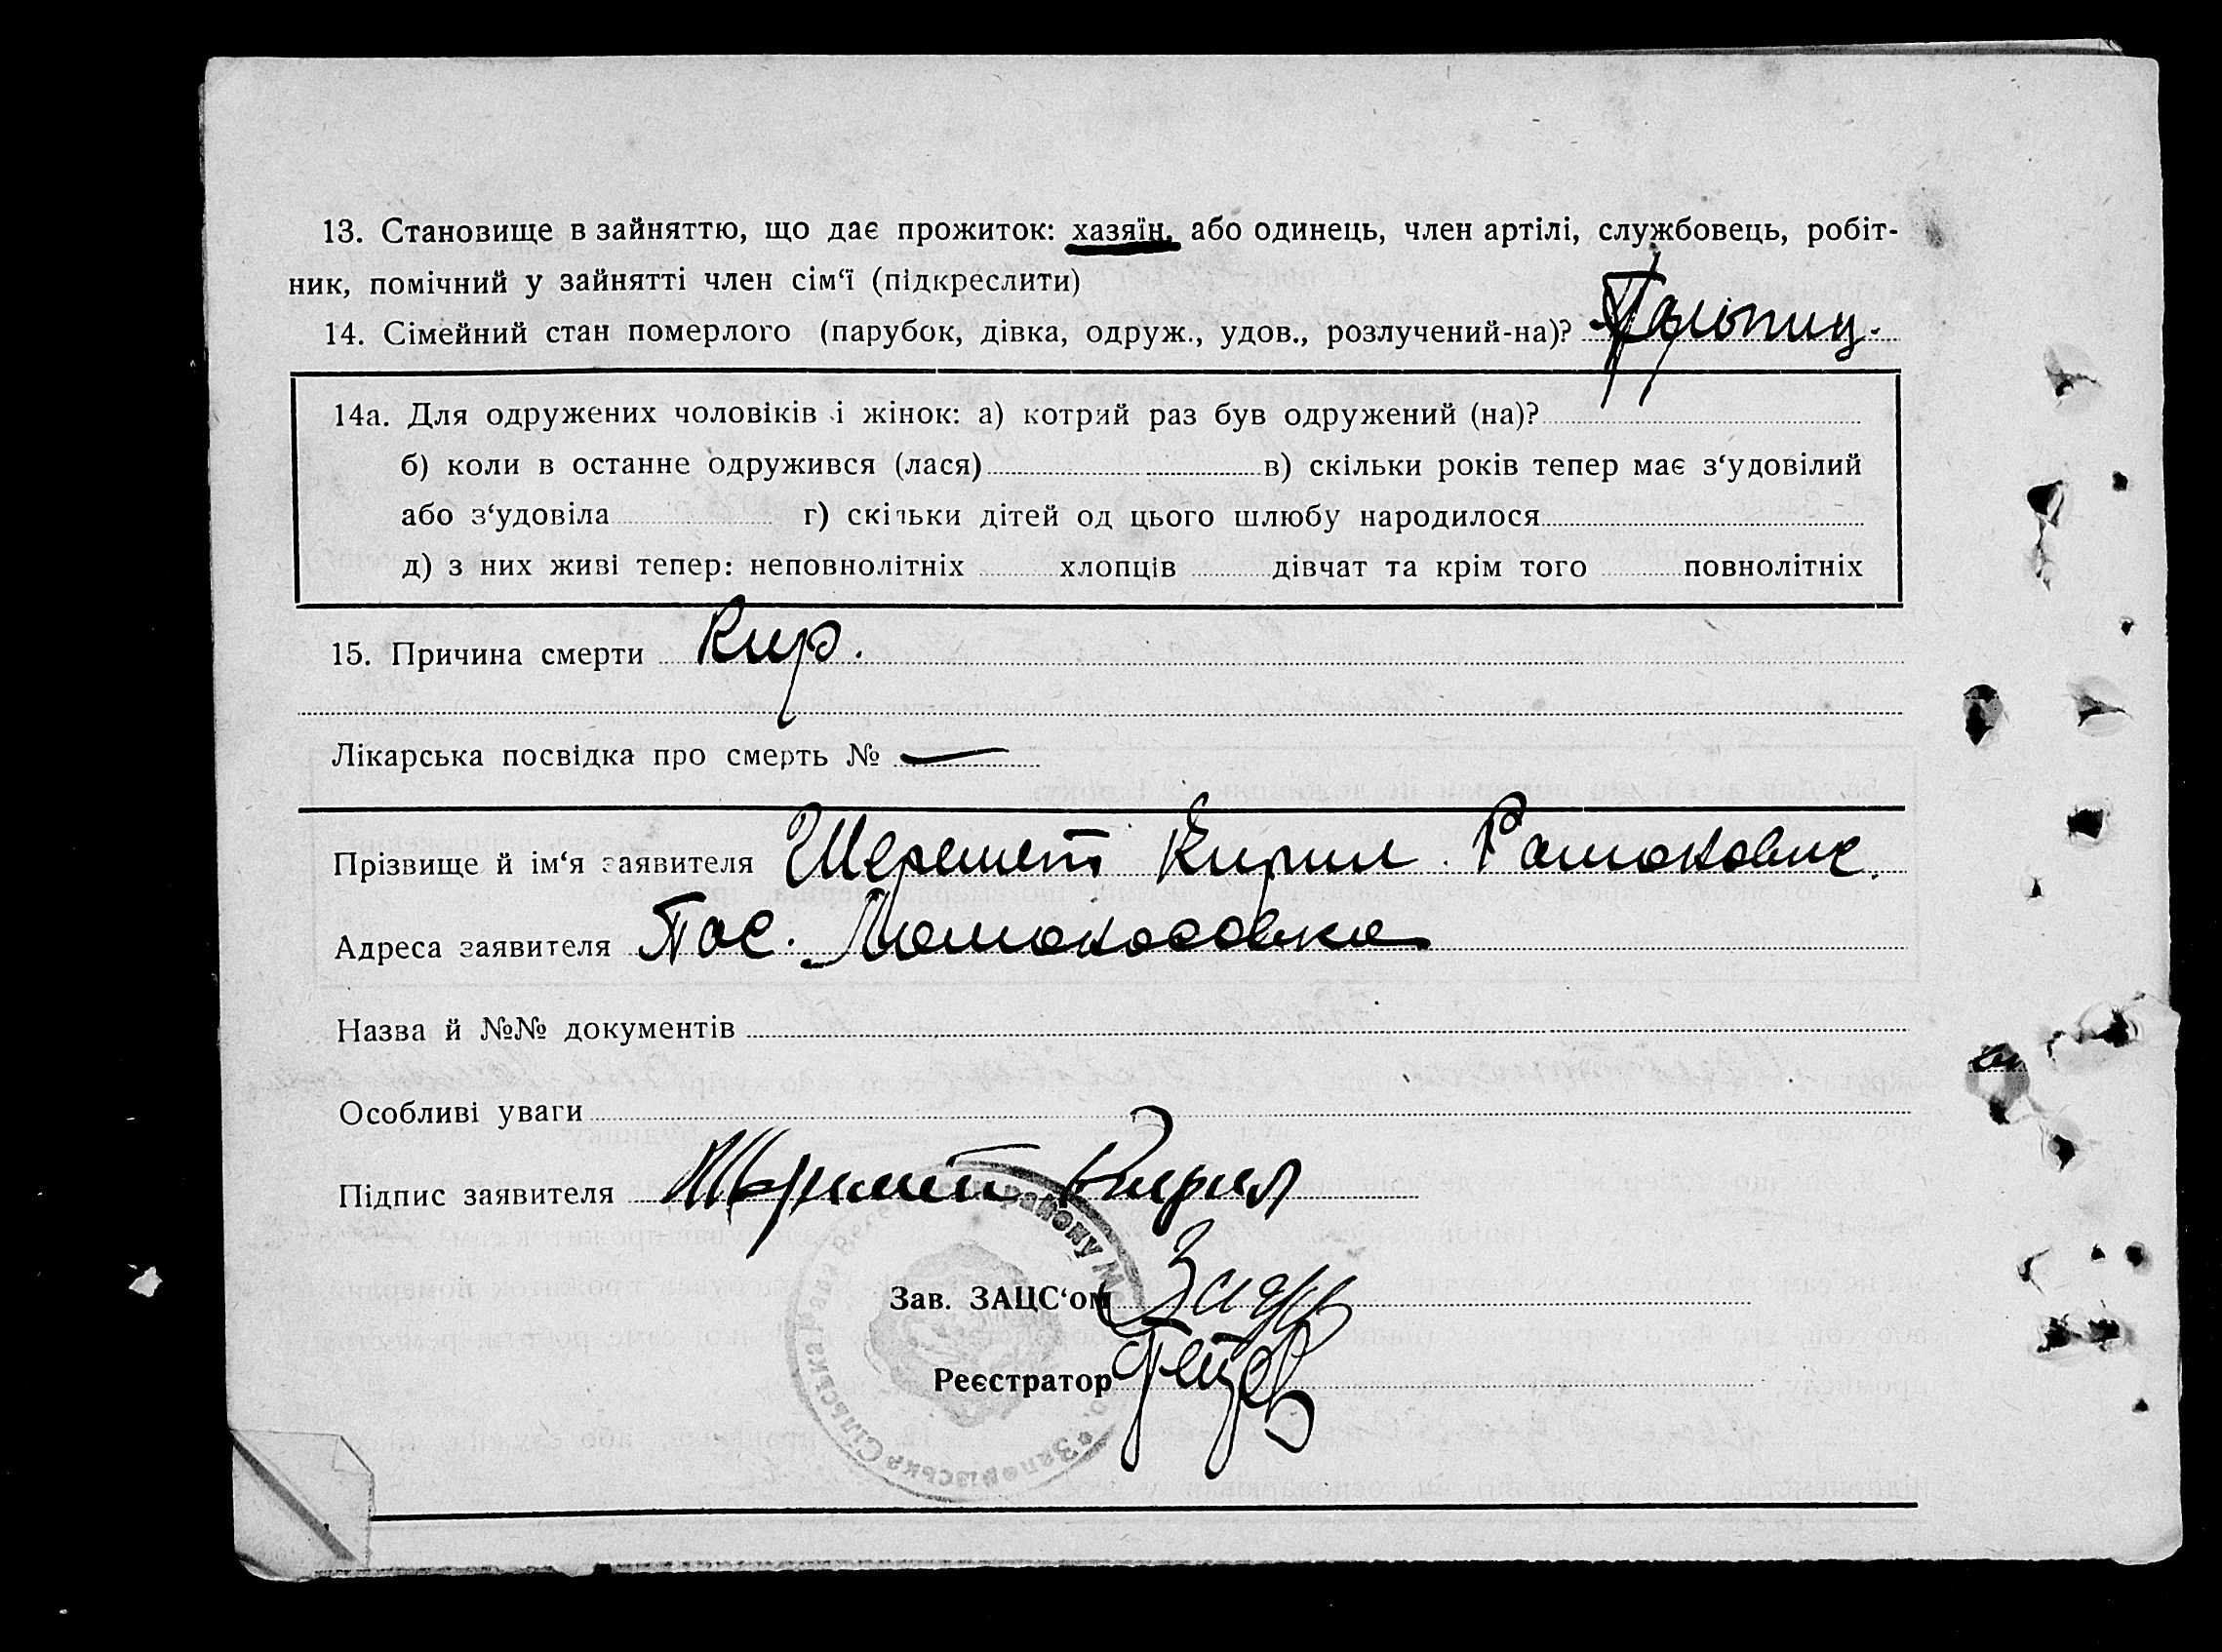 13. Становище в зайняттю, що дає прожиток: хазяїн, або одинець, член артілі, службовець, робіт-
ник, помічний у зайнятті член сім‘ї (підкреслити)
14. Сімейний стан померлого (парубок, дівка, одруж., удов., розлучений-на)?
14а. Для одружених чоловіків і жінок: а) котрий раз був одружений (на)?
б) коли в останнє одружився (лася) в) скільки років тепер має з‘удовілий
або з‘удовіла г) скільки дітей од цього шлюбу народилося
д) з них живі тепер: неповнолітніх хлопців дівчат та крім того повнолітніх
15. Причина смерти Кир.
Лікарська посвідка про смерть № —
Прізвище й ім‘я заявителя Шеремет Кирил
Адреса заявителя Пос.
Назва й №№ документів
Особливі уваги
Підпис заявителя Шеремет Кирил
Зав. ЗАЦС‘ом
Реєстратор
Запорізька Сільська Рада району